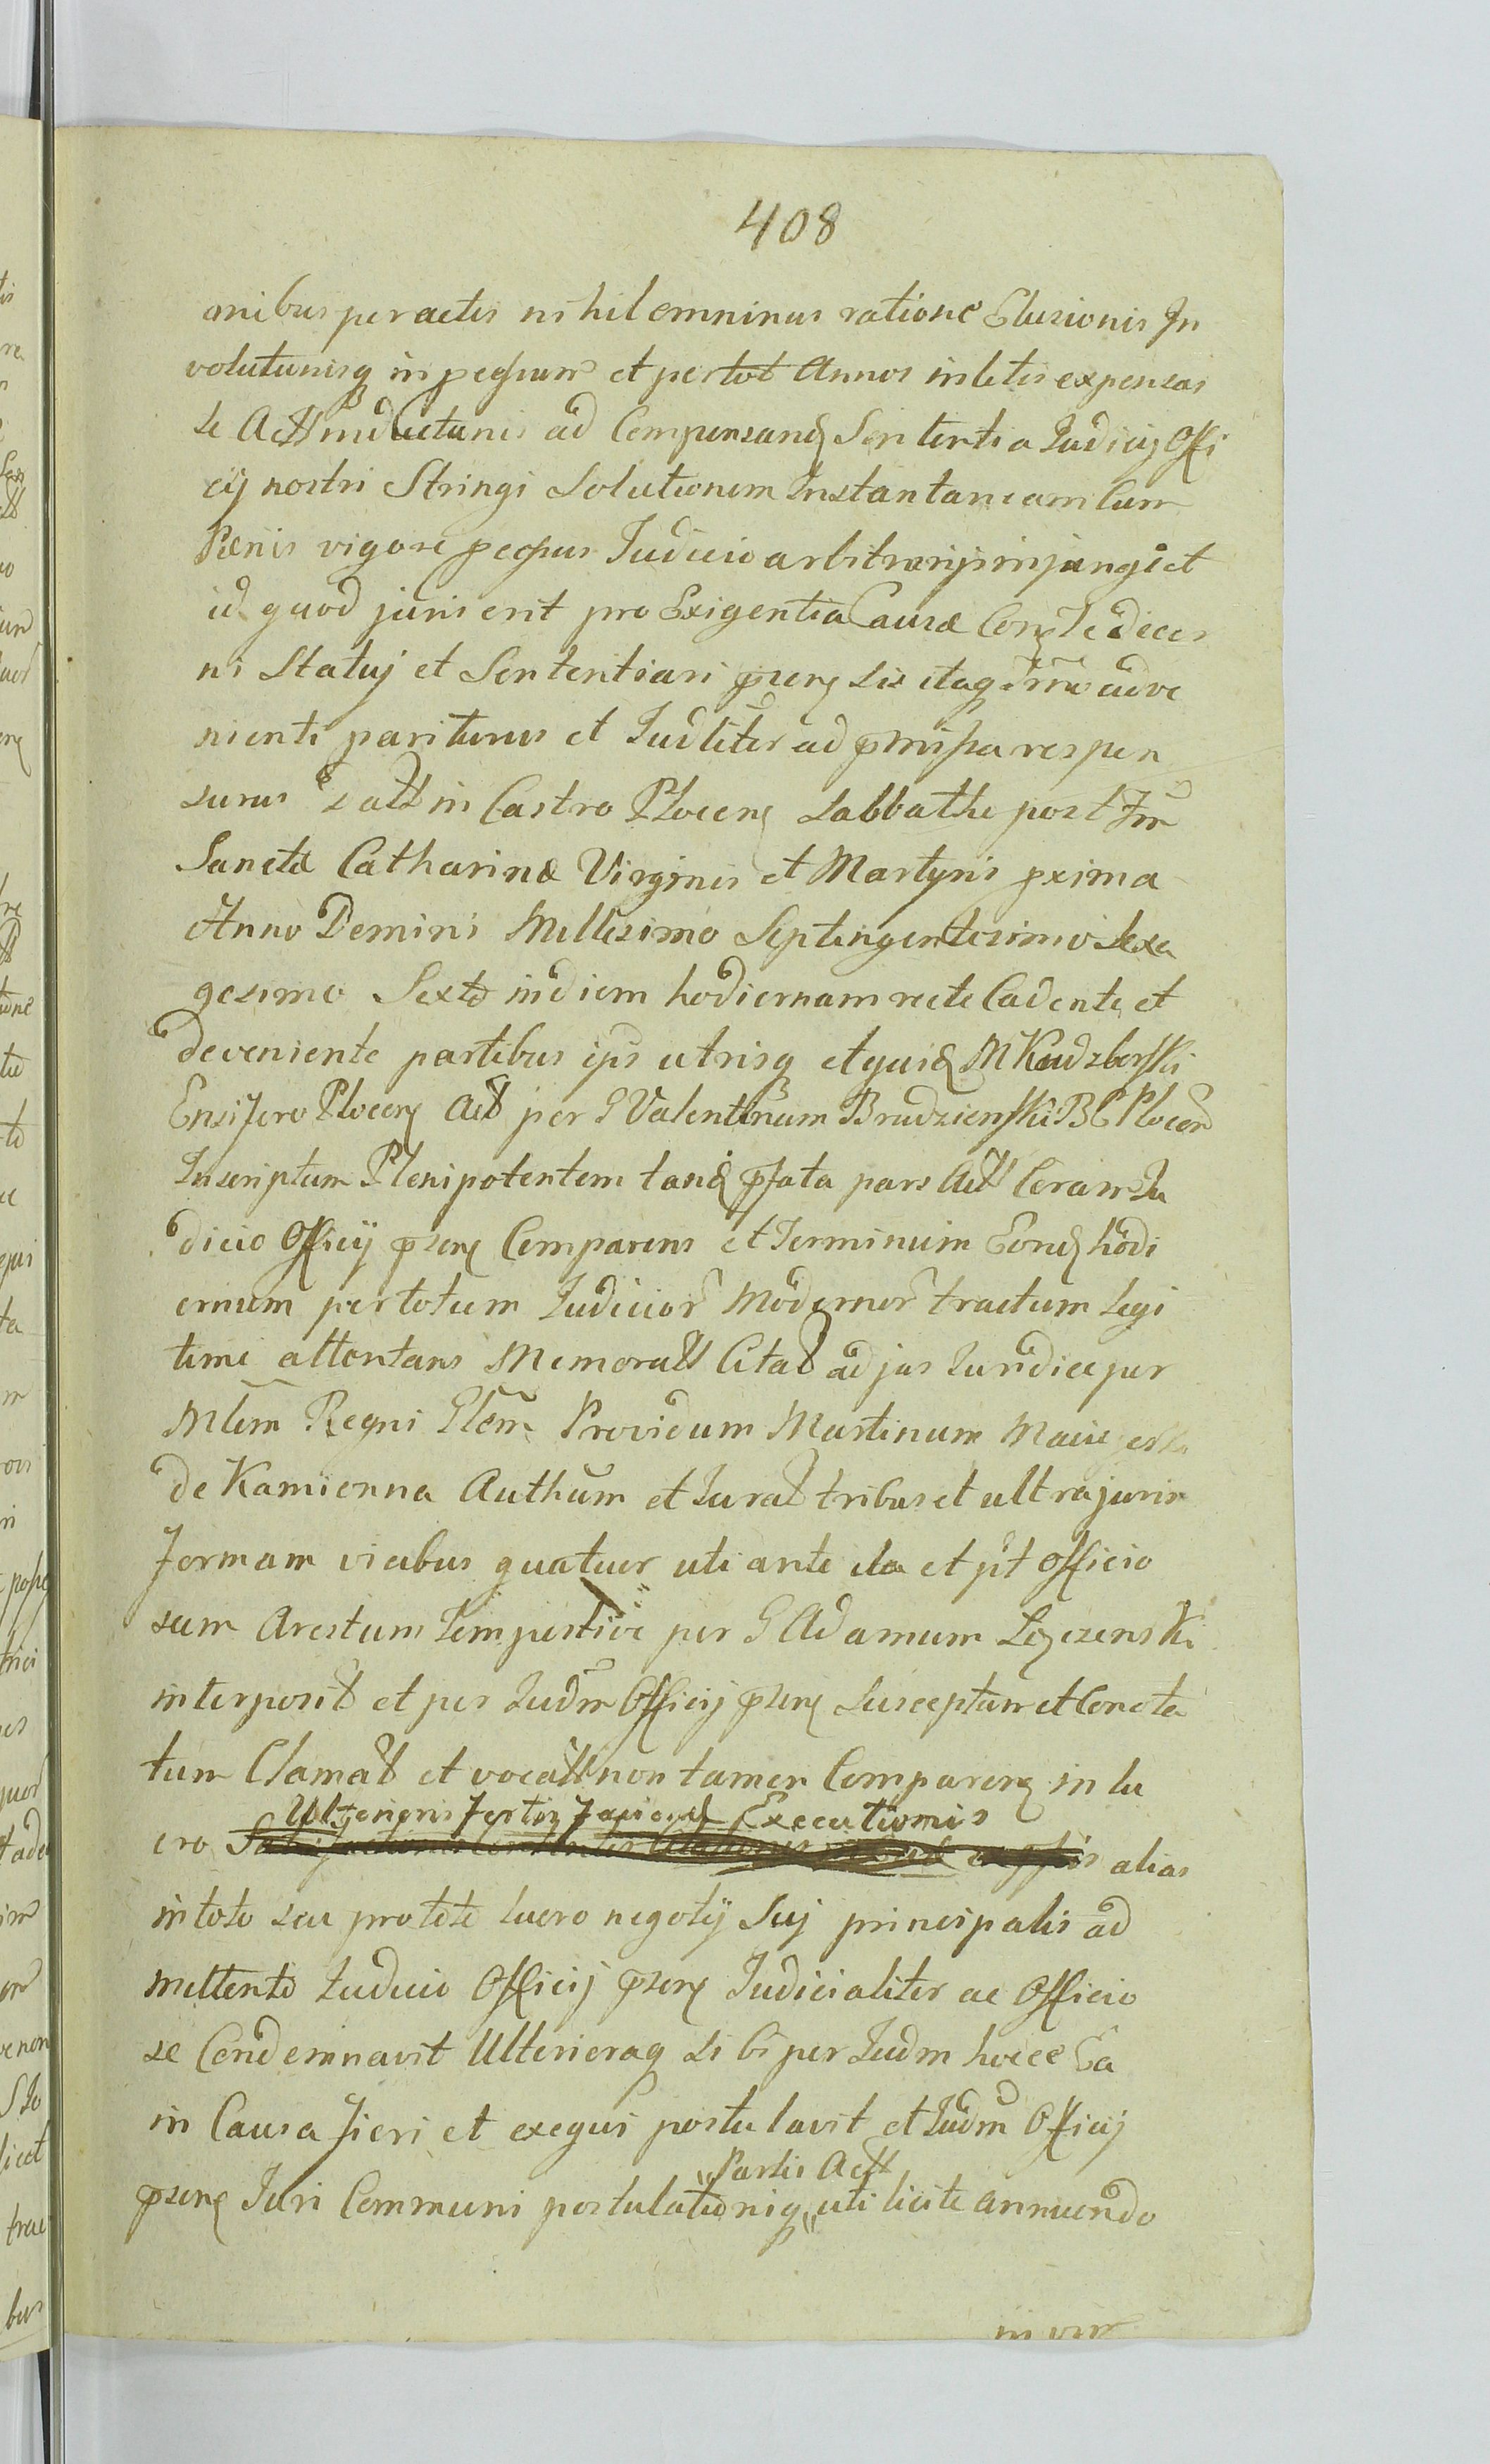 408
onibus peractis nihilominus ratione Elusionis In
volutionisq in pegsum et per tot Annos in litis expensas
se Actt inductionis ad Compensand Sententia Judicij Offi
cij nostri Stringi Solutionem Instantaneam Cum
Pænis vigore pegsus Judicio arbitrarijs injungi et
id quod juris erit pro Exigentia Causæ Cons Te decer
ni Statuj et Sententiari pren sis itaq trno adve
nienti pariturus et Judliter ad pmissa respon
surus Datt in Castro Plocen Sabbatho post Fm
Sanctæ Catharinæ Virginis et Martyris pxima
Anno Domini Millesimo Septingentesimo Sexa
gesimo Sexto in diem hodiernam recte Cadente et
deveniente partibus ipis utrisq et quid M Kadzborski
Ensifero Plocen Actt per G Valentinum Brudzienski BC Plocen
Inscriptum Plenipotentem tand pfata pars Actt Coram Ju
dicio Officij psens Comparens et Terminum Eund hodi
ernum per totum Judicior modernor tractum Legi
time attentans Memoratt Citatt ad jus Juridice per
Mlem Regni Glem Providum Martinum
de Kamienna Authum et Juratt tribus et ultra juris
formam vicibus quatuor uti ante ita et pt Officio
sum Arestum Tempestive per G Adamum Lezczenski
interposit et per Judm Officij psens Susceptum et Connota
tum Clamatt et vocatt non tamen Comparen in lu
Ulterioris Executionis
cro alias
in toto seu pro toto lucro negotij Suj principalis ad
mittente Judicio Officij psens Judicialiter ac Officio
se Condemnavit Ulterioraq Sibi per Judm hocce Ea
in Causa fieri et exequi postulavit et Judm Officij
Partis Actt
psens Juri Communi postulationiq uti licite annuendo
in vim